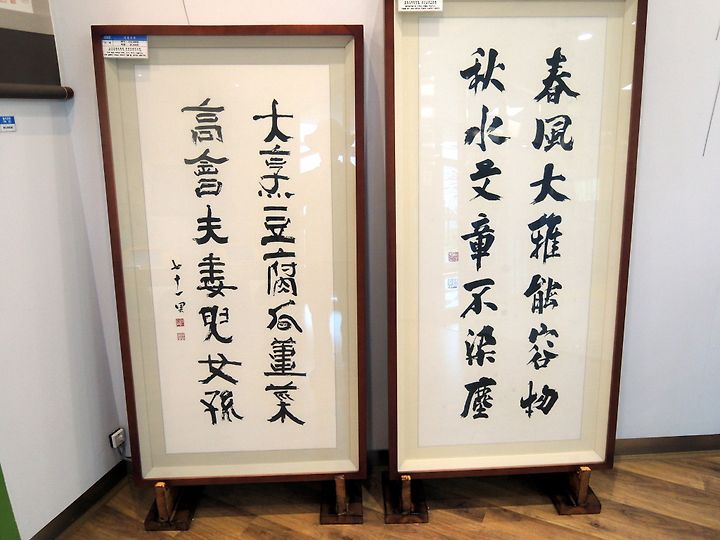 大烹豆腐瓜薑菜
高會夫妻兒女孫
七十一果
春風大雅能容物
秋水文章不染塵